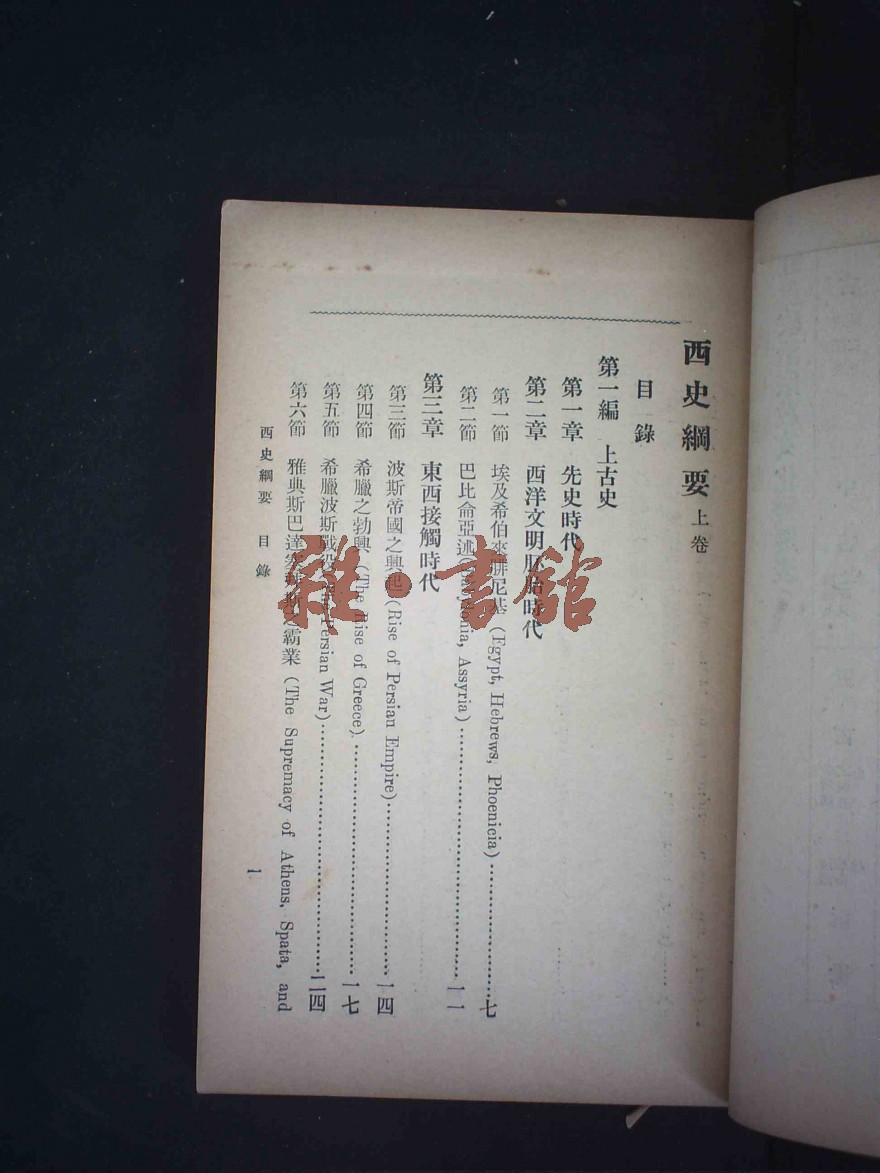 西史綱要 上卷
目錄
第一編 上古史
第一章 先史時代
第二章 西洋文明胚胎時代
第一節 埃及希伯來腓尼基 (Egypt, Hebrews, Phoenicia)……七
第二節 巴比侖亞述(Babylonia, Assyria)……一一
第三章 東西接觸時代
第三節 波斯帝國之興起(Rise of Persian Empire)……一四
第四節 希臘之勃興(The Rise of Greece)……一七
第五節 希臘波斯戰役 Persian War)……二四
第六節 雅典斯巴達 斯之霸業 (The Supremacy of Athens, Spata, and
西史綱要 目錄
一
雜·書館